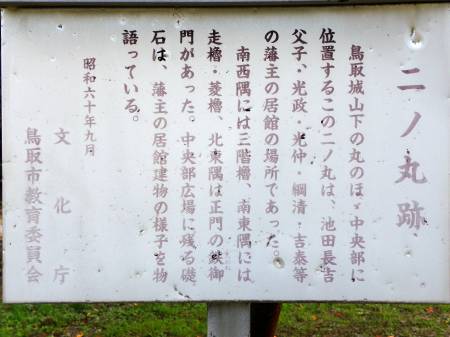 二ノ丸跡
鳥取城山下の丸のほゞ中央部に
位置するこの二ノ丸は、池田長吉
父子・光政・光仲・綱清・吉泰等
の藩主の居館の場所であった。
南西隅には三階櫓、南東隅には
走櫓・菱櫓、北東隅は正門の鉄御
門があった。中央部広場に残る礎
石は、藩主の居館建物の様子を物
語っている。
昭和六十年九月
文化庁
鳥取市教育委員会